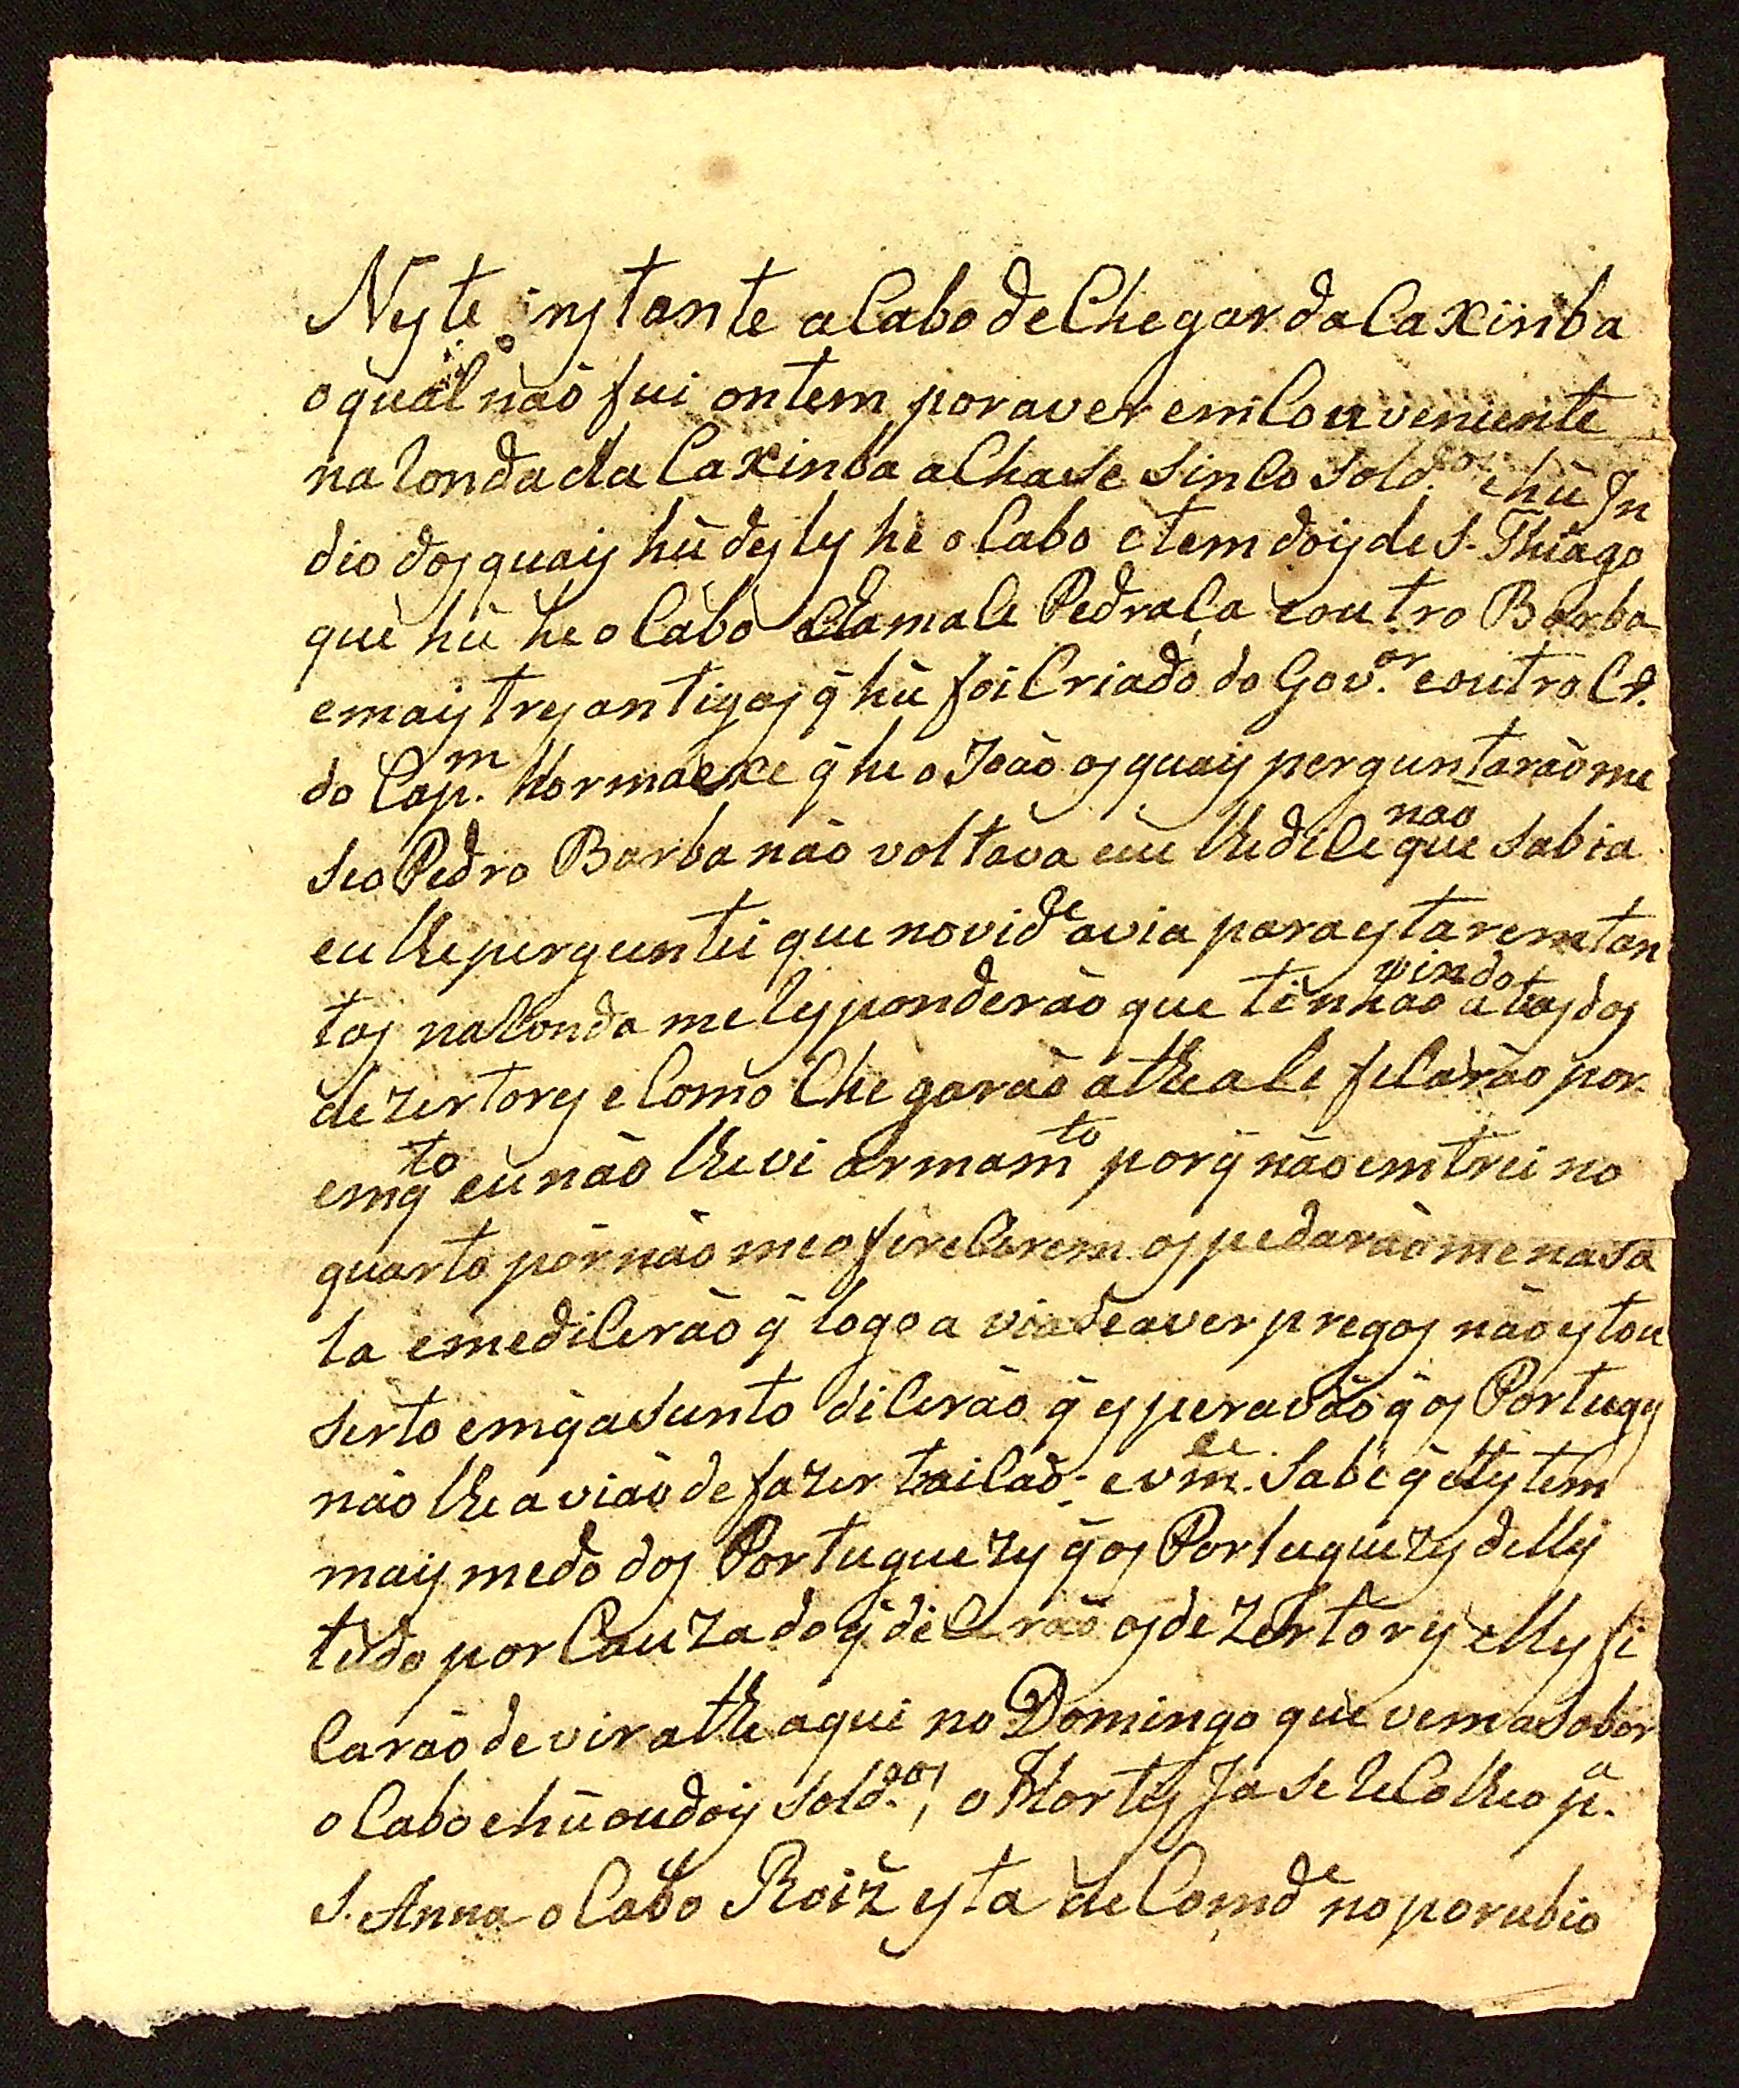 Neste instante acabo de Chegar da Caxinba
o qual não fui ontem por aver emComveniente
na Ronda da Caxinba aChase sinco sold.os e hũ In
dio dos quais hũ destes he o Cabo e tem dois de S. Thiago
que hũ he o Cabo chamace Pedraça e outro Barba
e mais tres antigos q̃ hũ foi Criado do Gov.or e outro Cr.
do Cap.m q̃ he o João os quais perguntarão me
se o Pedro Barba não voltava eu lhe dice que não sabia
eu lhe perguntei que novid.e avia para estarem tan
tos na Ronda me Responderão que tinhão vindo atras dos
dezertores e Como Chegarão athe ali ficarão por
emq.to eu não lhe vi armam.to porq̃ não emtrei no
quarto por não me oferecerem ospedarão me na sa
la e me dicerão q̃ logo avia de aver pregos não estou
serto em q̃ asunto dicerão q̃ esperavão q̃ os Portugs
não lhe avião de fazer traição e vm.ce sabe q̃ elles tem
mais medo dos Portuguezes q̃ os Portuguezes delles
tudo por Cauza do q̃ dicerão os dezertores elles fi
carão de vir athe aqui no Domingo que vem a sabor
o Cabo e hũ ou dois sold.os, o Já se ReColheo p.a
S. Anna o Cabo Roiz esta de Comd.e no porubio